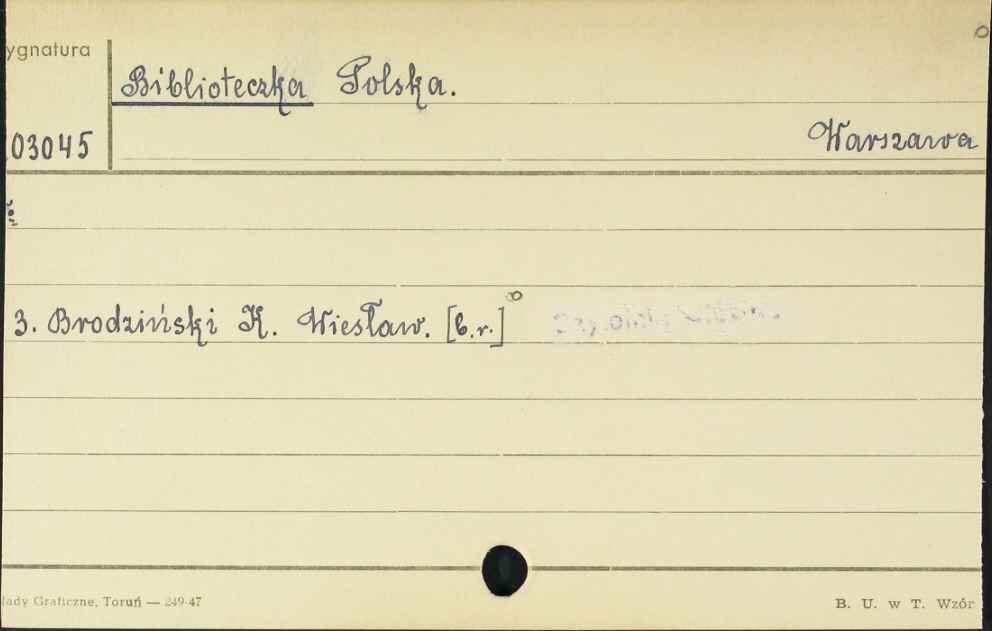 ygnatura
Biblioteczka Polska.
03045
Warszawa
3. Brodziński K. Wiesław. [b.r.]
łady Graficzne, Toruń — 249-47
B. U. w T. Wzór